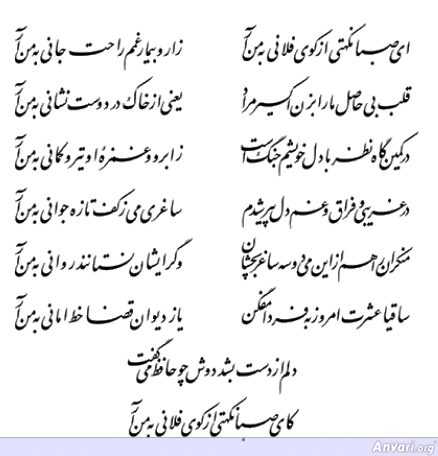 ای صبا نکهتی از کوی فلانی به من آر
زار و بیمار غمم راحت جانی به من آر
قلب بی حاصل ما را بزن اکسیر مراد
یعنی از خاک در دوست نشانی به من آر
در کمین گاه نظر با دل خویشم جنگ است
ز ابرو و غمزه او تیر و کمانی به من آر
در غریبی و فراق و غم دل پیر شدم
ساغری می ز کف تازه جوانی به من آر
منکران را هم از این می دو سه ساغر بچشان
وگر ایشان نستانند روانی به من آر
ساقیا عشرت امروز به فردا مفکن
یا ز دیوان قضا خط امانی به من آر
دلم از دست بشد دوش چو حافظ می گفت
کای صبا نکهتی از کوی فلانی به من آر
Anvari.org